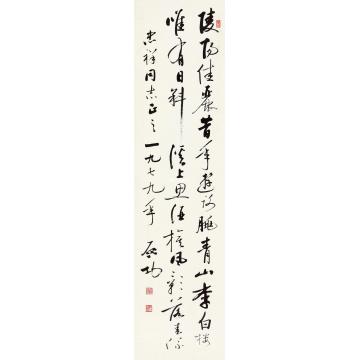 陵陽佳麗昔年遊謝朓青山李白樓
唯有日斜溪上思酒旗風影落春流
忠祥同志正之一九七九年啟功